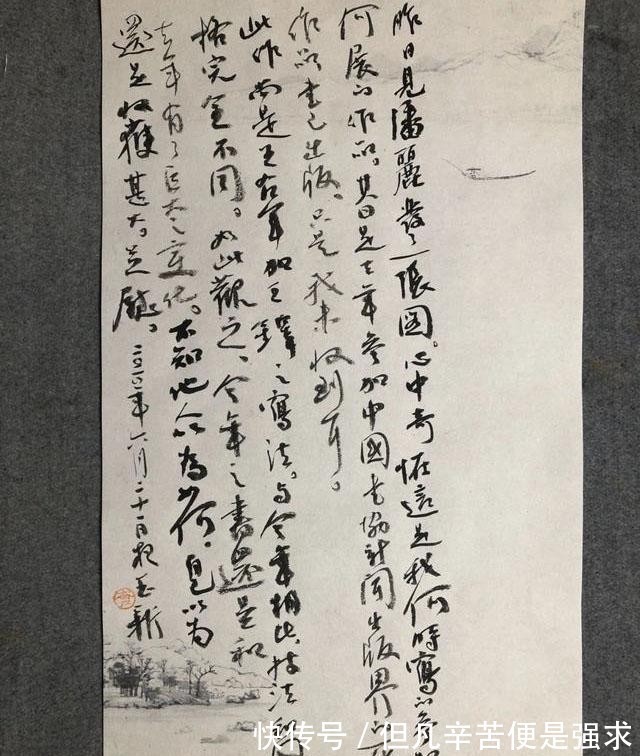 昨日見潘麗發了一張圖。心中奇怪這是我何時寫的參
何展的作品。其是去年參加中國書協新聞出版界的
作品書已出版。只是我未收到耳。
此作尚是王右軍加王鐸之寫法。与今年相比、技法
格完全不同。如此觀之、今年之書還是和
去年有了巨大之變化。不知他人以為如何。自以為
還是收穫甚大。足慰。二〇二〇年六月二十一日
快传号 / 但凡辛苦便是强求